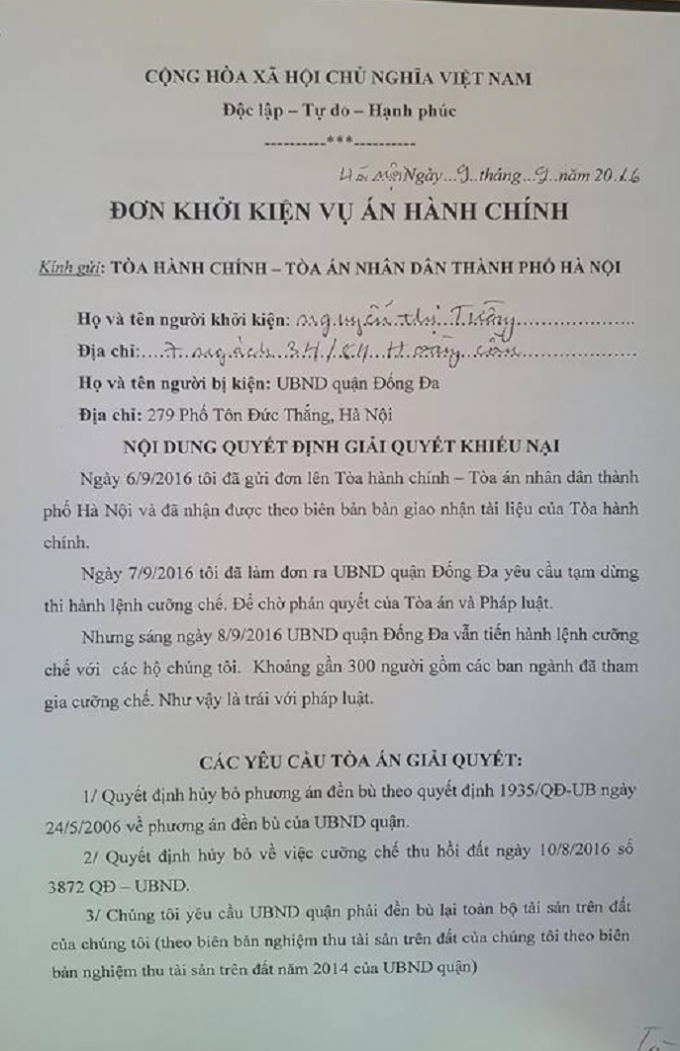 CỘNG HÒA XÃ HỘI CHỦ NGHĨA VIỆT NAM
Độc lập – Tự do – Hạnh phúc
----------***----------
Hà Nội Ngày...9..tháng...9..năm 20.16
ĐƠN KHỞI KIỆN VỤ ÁN HÀNH CHÍNH
Kính gửi: TÒA HÀNH CHÍNH – TÒA ÁN NHÂN DÂN THÀNH PHỐ HÀ NỘI
Họ và tên người khởi kiện: Nguyễn Thị
Địa chỉ: 7 ngách 34/ Hoàng Cầu
Họ và tên người bị kiện: UBND quận Đống Đa
Địa chỉ: 279 Phố Tôn Đức Thắng, Hà Nội
NỘI DUNG QUYẾT ĐỊNH GIẢI QUYẾT KHIẾU NẠI
Ngày 6/9/2016 tôi đã gửi đơn lên Tòa hành chính – Tòa án nhân dân thành
phố Hà Nội và đã nhận được theo biên bản bàn giao nhận tài liệu của Tòa hành
chính.
Ngày 7/9/2016 tôi đã làm đơn ra UBND quận Đống Đa yêu cầu tạm dừng
thi hành lệnh cưỡng chế. Để chờ phán quyết của Tòa án và Pháp luật.
Nhưng sáng ngày 8/9/2016 UBND quận Đống Đa vẫn tiến hành lệnh cưỡng
chế với các hộ chúng tôi. Khoảng gần 300 người gồm các ban ngành đã tham
gia cưỡng chế. Như vậy là trái với pháp luật.
CÁC YÊU CẦU TÒA ÁN GIẢI QUYẾT:
1/ Quyết định hủy bỏ phương án đền bù theo quyết định 1935/QĐ-UB ngày
24/5/2006 về phương án đền bù của UBND quận.
2/ Quyết định hủy bỏ về việc cưỡng chế thu hồi đất ngày 10/8/2016 số
3872 QĐ – UBND.
3/ Chúng tôi yêu cầu UBND quận phải đền bù lại toàn bộ tài sản trên đất
của chúng tôi (theo biên bản nghiệm thu tài sản trên đất của chúng tôi theo biên
bản nghiệm thu tài sản trên đất năm 2014 của UBND quận)